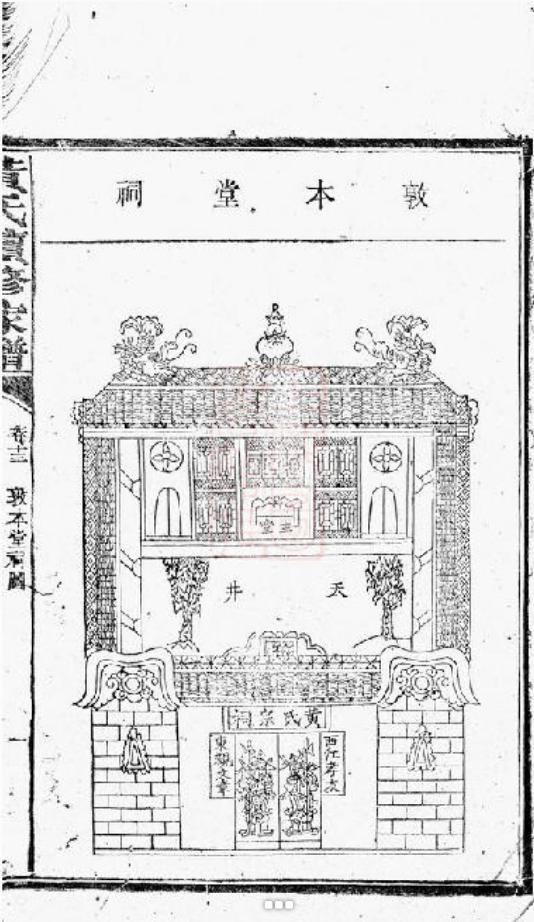 敦本堂祠
天井
黃氏宗祠
西江孝友
東觀文章
黃氏續修家譜
卷十三
敦本堂祠圖
一